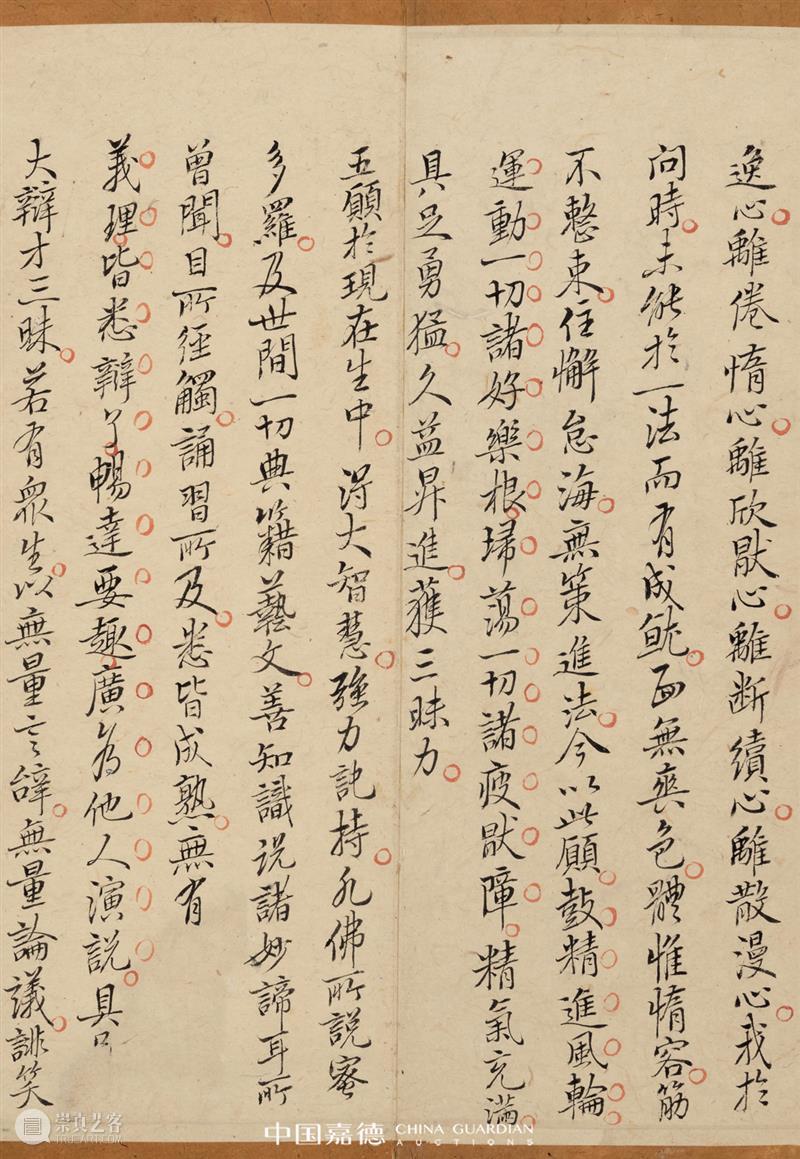 逸心離倦惰心離欣厭心離断續心離散漫心我於
問時未能於一法而有成就面無喪色體惟惰容筋
不整束住懈怠海無策進法今以此願鼓精進風輪
運動一切諸好樂根埽蕩一切諸疲厭障精氣充滿
具足勇猛久益昇進獲三昧力
五願於現在生中得大智慧強力記持凡佛所說蜜
多羅及世間一切典籍藝文善知識說諸妙諦耳所
曾聞目所徑觸誦習所及悉皆成熟無有
義理皆悉辯了暢達要趣廣為他人演說具
大辯才三昧若有眾生以無量言辭無量論議誹笑
崇真艺客
中国嘉德 CHINA GUARDIAN
AUCTIONS